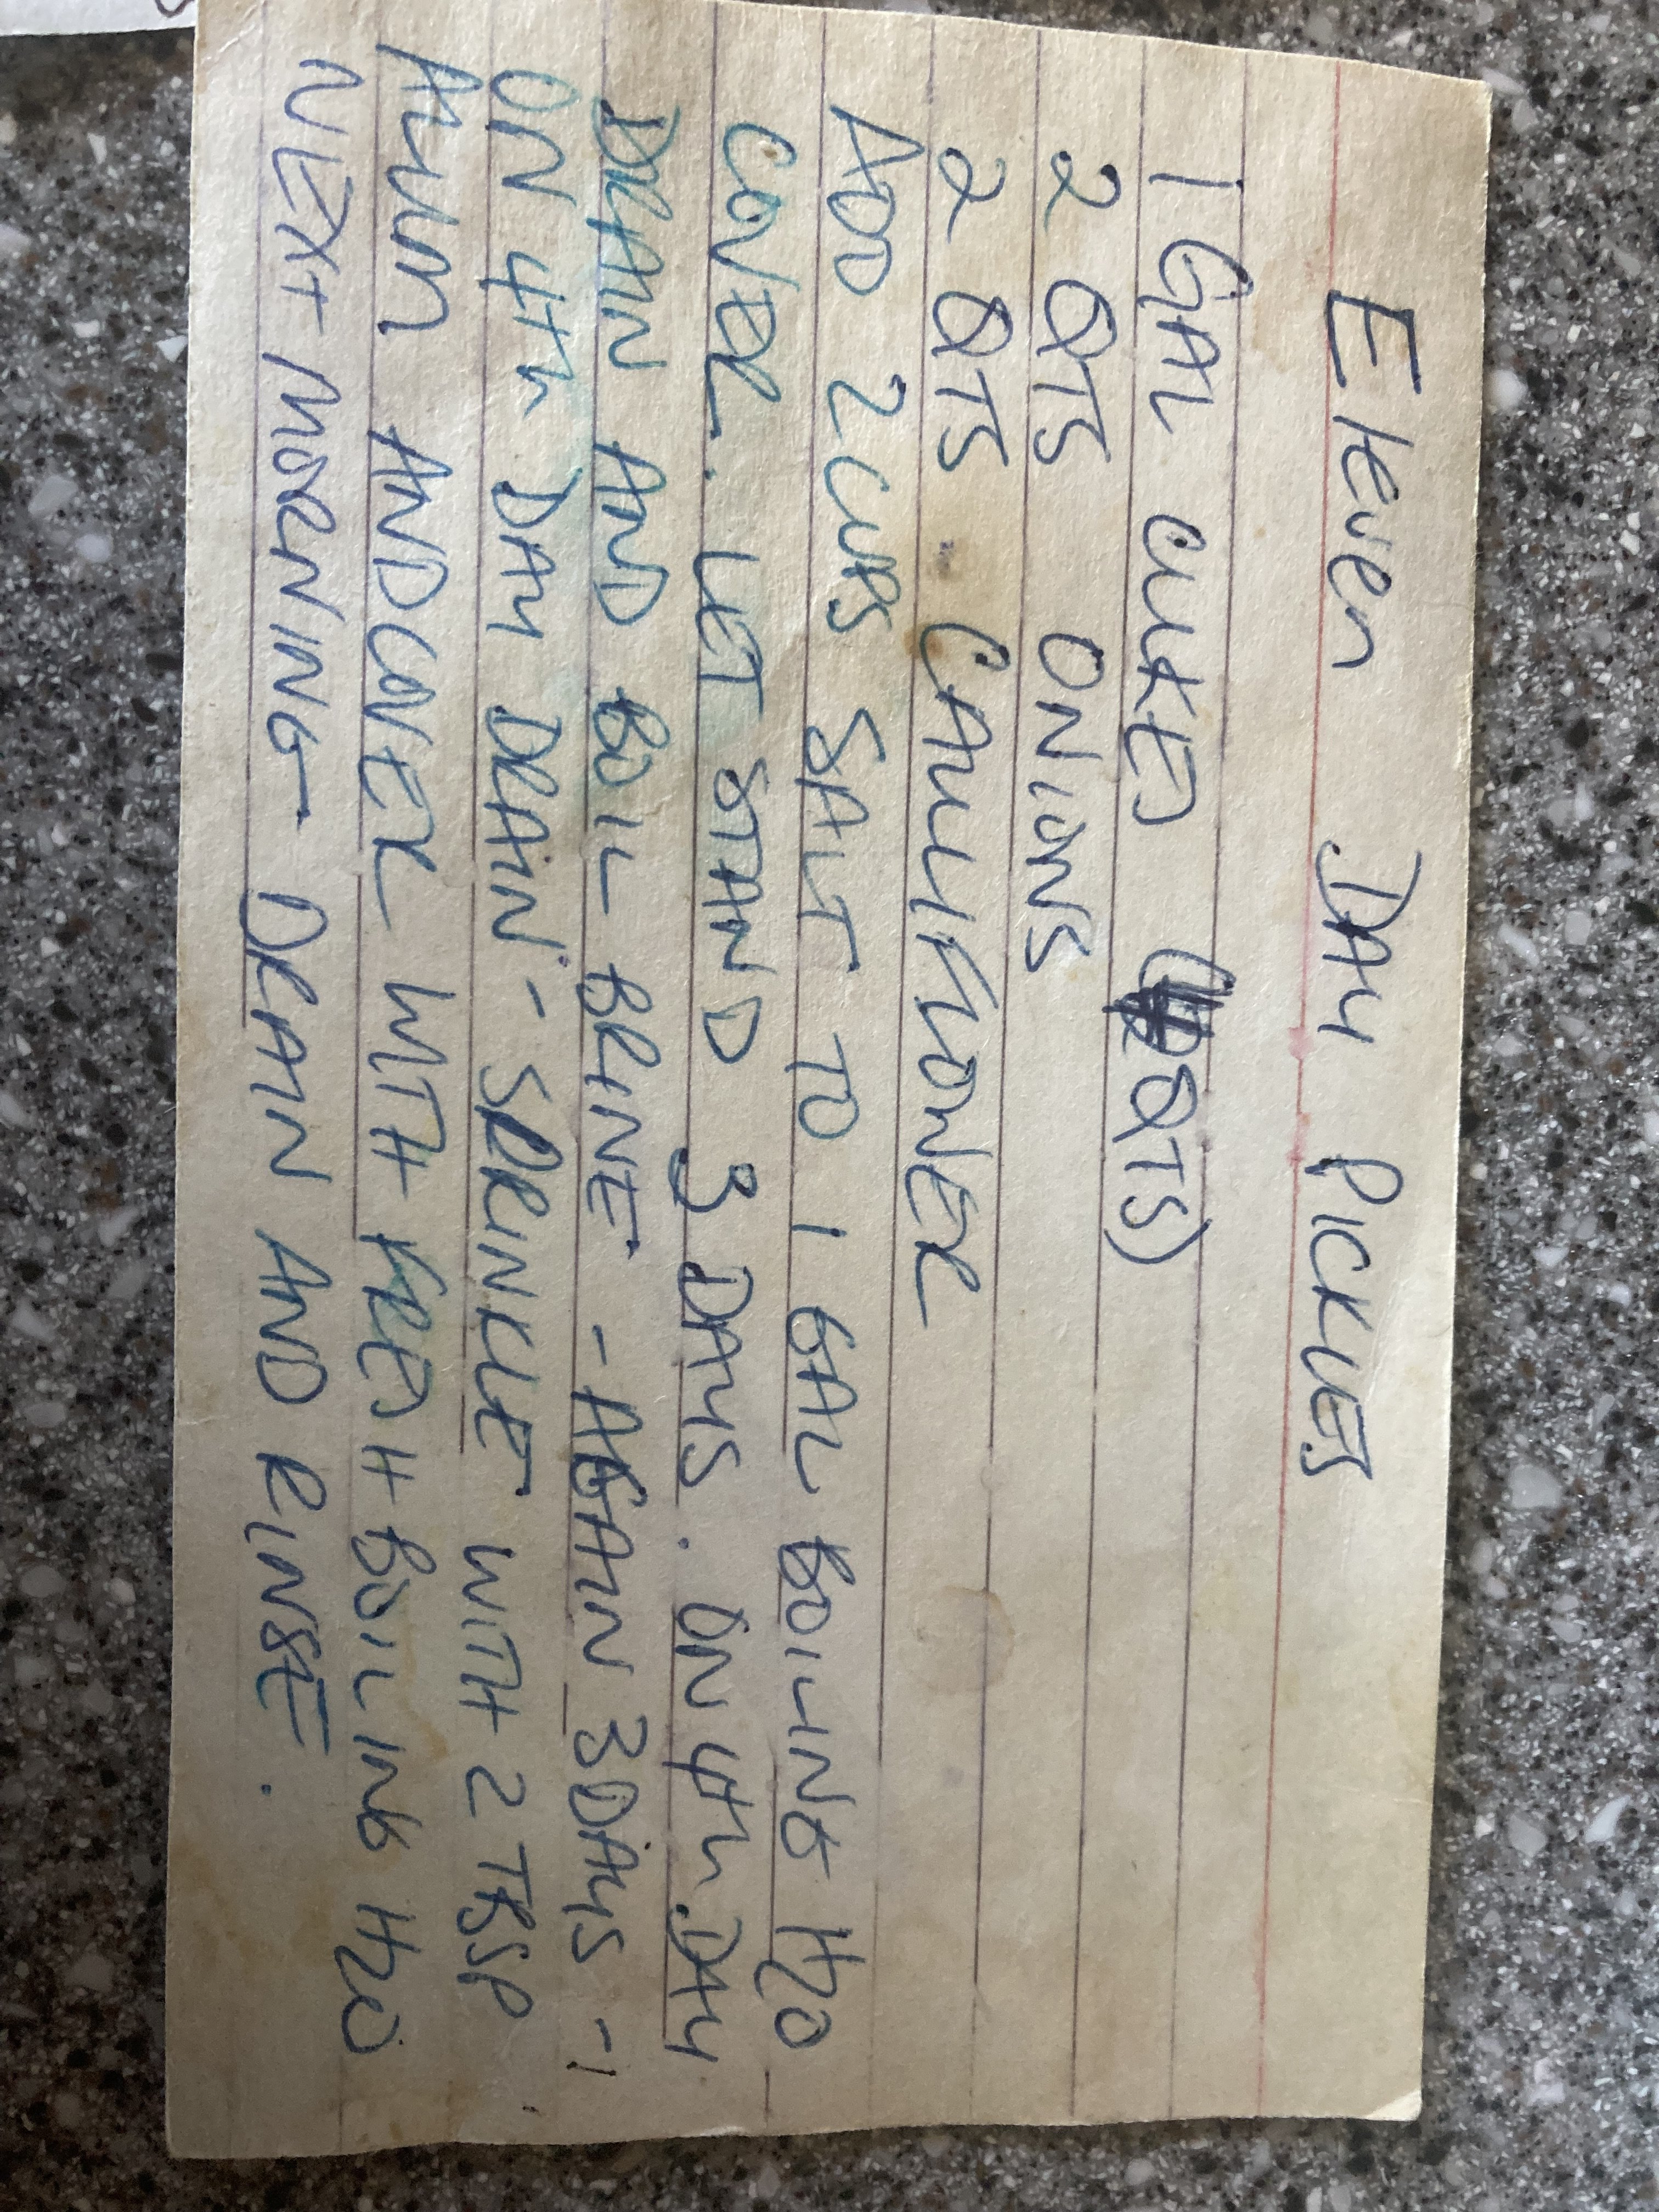 Eleven DAY PICKLES
1 GAL CUKES (QTS)
2 QTS ONIONS
2 QTS CAULIFLOWER
ADD 2 CUPS SALT TO 1 GAL BOILING H2O
COVER. LET STAND 3 DAYS. ON 4th DAY
DRAIN AND BOIL BRINE - AGAIN 3 DAYS -
ON 4th DAY DRAIN - SPRINKLE WITH 2 TBSP
ALUM AND COVER WITH FRESH BOILING H2O
NEXT MORNING - DRAIN AND RINSE.